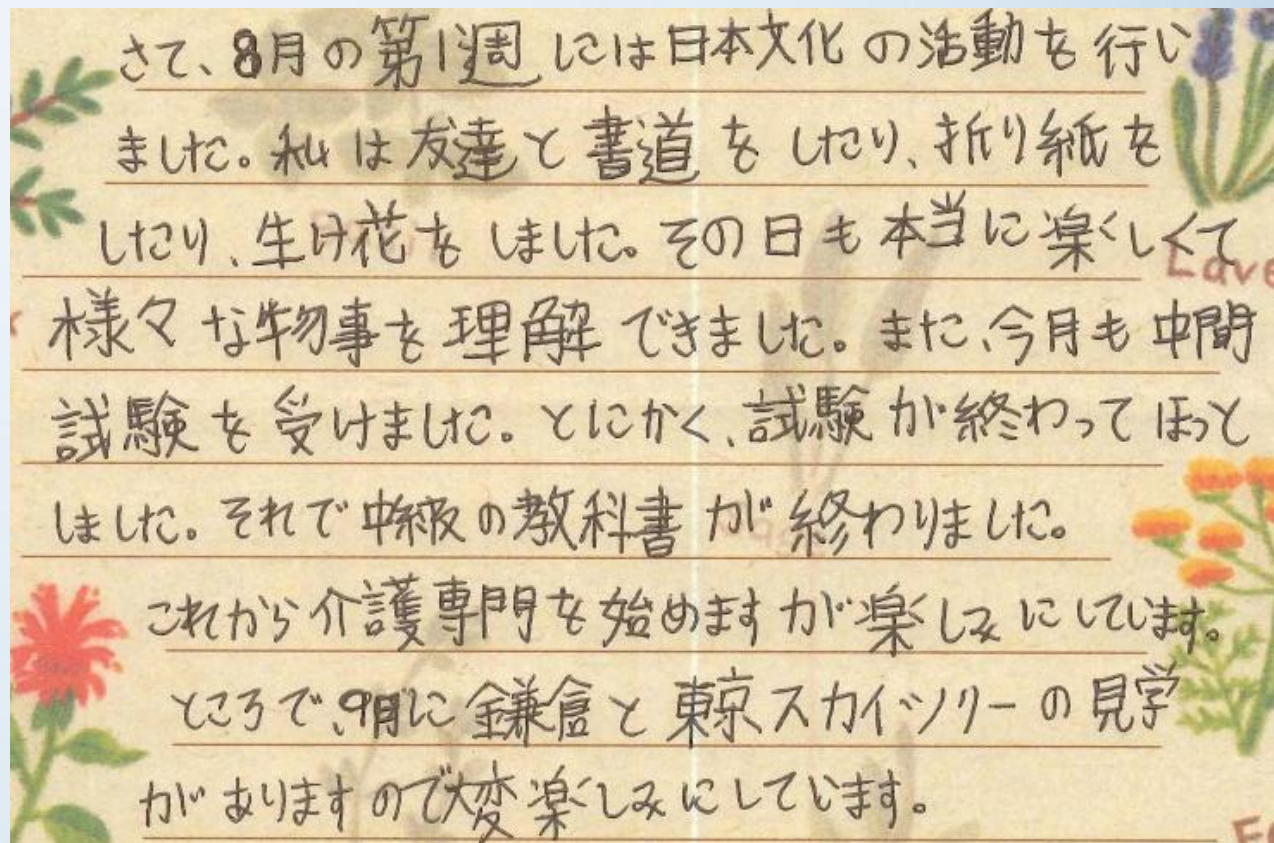 さて、8月の第1週には日本文化の活動を行い
ました。私は友達と書道をしたり、折り紙を
したり、生け花をしました。その日も本当に楽くしくて
Lave
様々な物事を理解できました。また、今月も中間
試験を受けました。とにかく、試験が終わってほっと
しました。それで中級の教科書が終わりました。
これから介護専門を始めますが楽しみにしています。
ところで、9月に鎌倉と東京スカイツリーの見学
がありますので大変楽しみにしています。